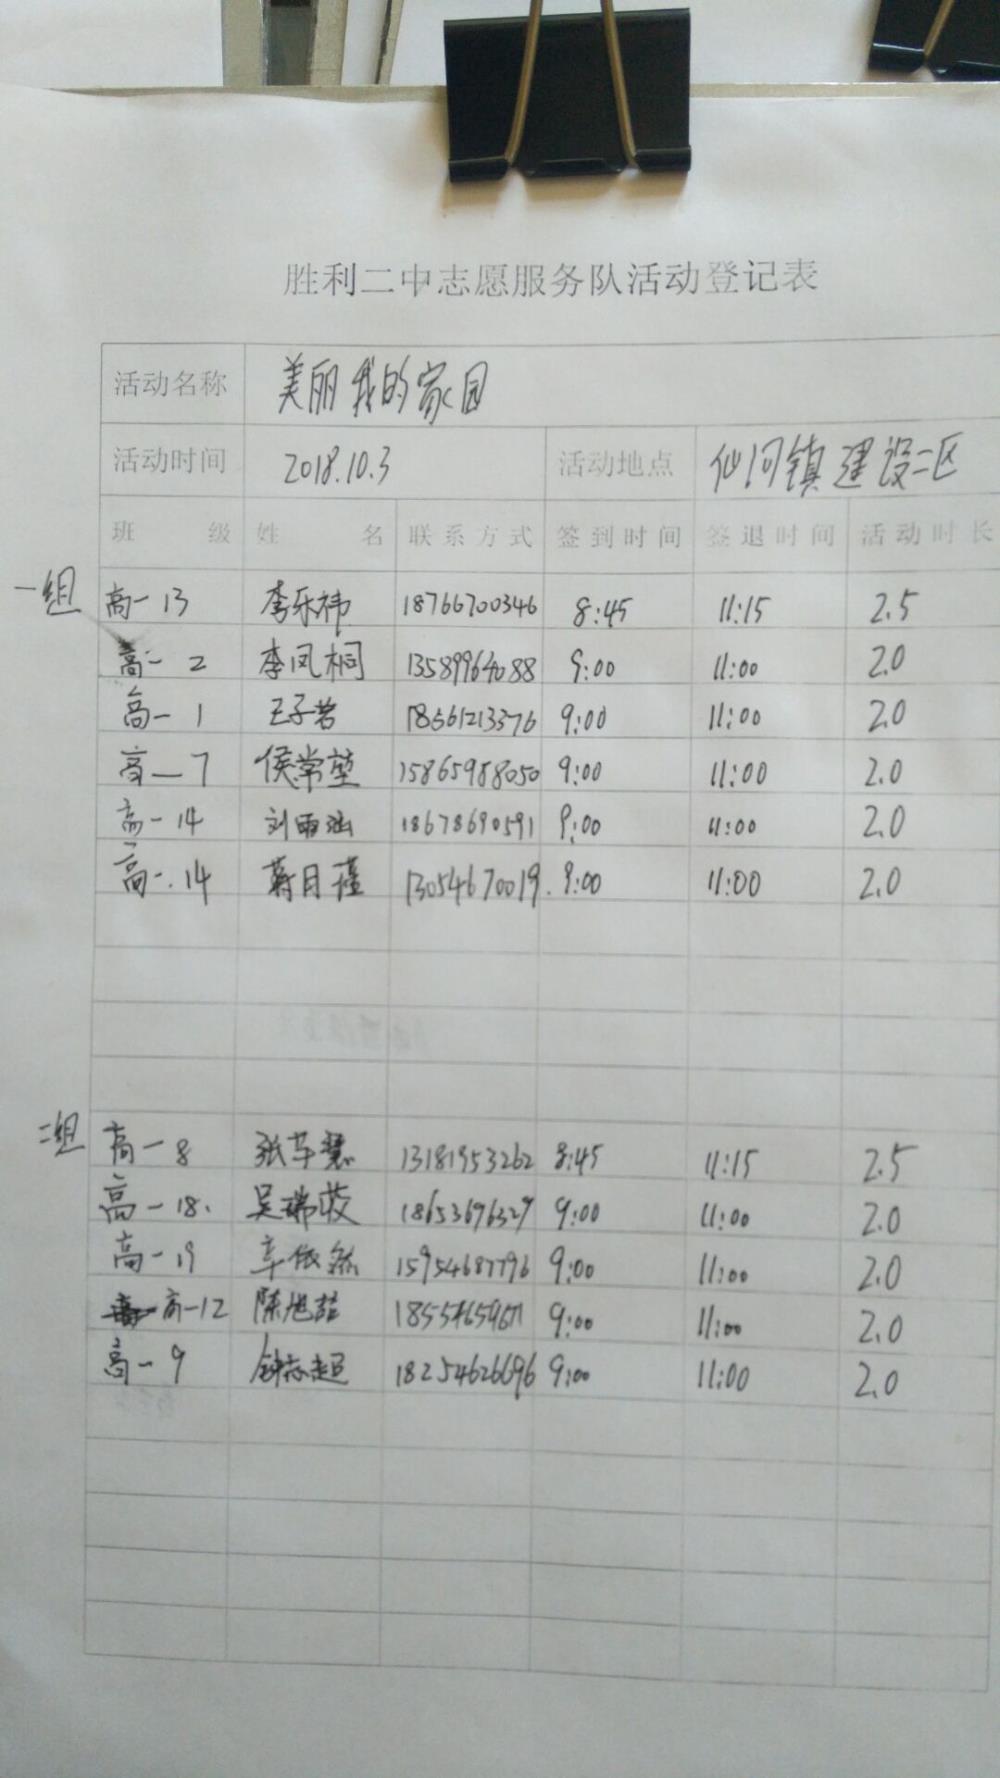 胜利二中志愿服务队活动登记表
活动名称 美丽我的家园
活动时间 2018.10.3 活动地点 仙河镇建设二区
班级 姓名 联系方式 签到时间 签退时间 活动时长
一组 高一 13 李乐祎 18766700346 8:45 11:15 2.5
高一 2 李凤桐 13589964088 9:00 11:00 2.0
高一 1 王子若 18561213376 9:00 11:00 2.0
高一 7 侯常堃 15865988050 9:00 11:00 2.0
高一 14 刘雨涵 18678690591 9:00 11:00 2.0
高一.14 蒋月瑾 13054670019. 9:00 11:00 2.0
二组 高一 8 张芊慧 13181953262 8:45 11:15 2.5
高一 18. 吴瑞莜 18653696329 9:00 11:00 2.0
高一 19 辛依然 15954687796 9:00 11:00 2.0
高一12 陈旭喆 9:00 11:00 2.0
高一 9 钟志超 18254626696 9:00 11:00 2.0